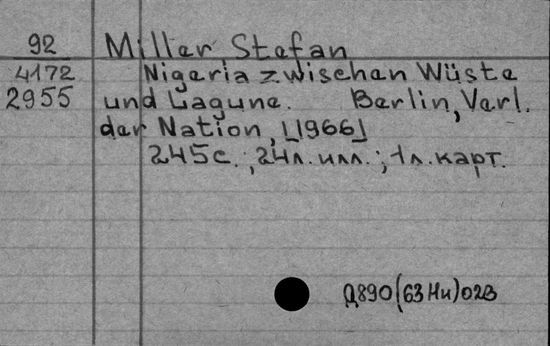 92 Miller, Stefan
4172 Nigeria zwischen Wüste
2955 und Lagune. Berlin, Verl.
der Nation, [1966]
245с.; 24л. илл.; 1л. карт.
Д890(63Ни)02В